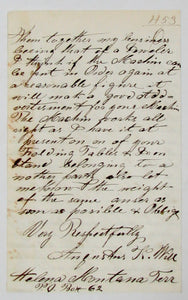 453
them together my business
being that of a Jeweler
I think if the Machin can
be put in Order again at
a reasonable figure I
will make a good add-
vertisement for your Machin
The Machin works all
right as I have it at
present on on of your
Folding Tables & Iron
Stand belonging to a
nother party. Also let
me know the weight
of the same answer as
soon as posible & Oblige
Very Respectfully
Augustus K. Will
Helena Montana Terr
PO Box 62